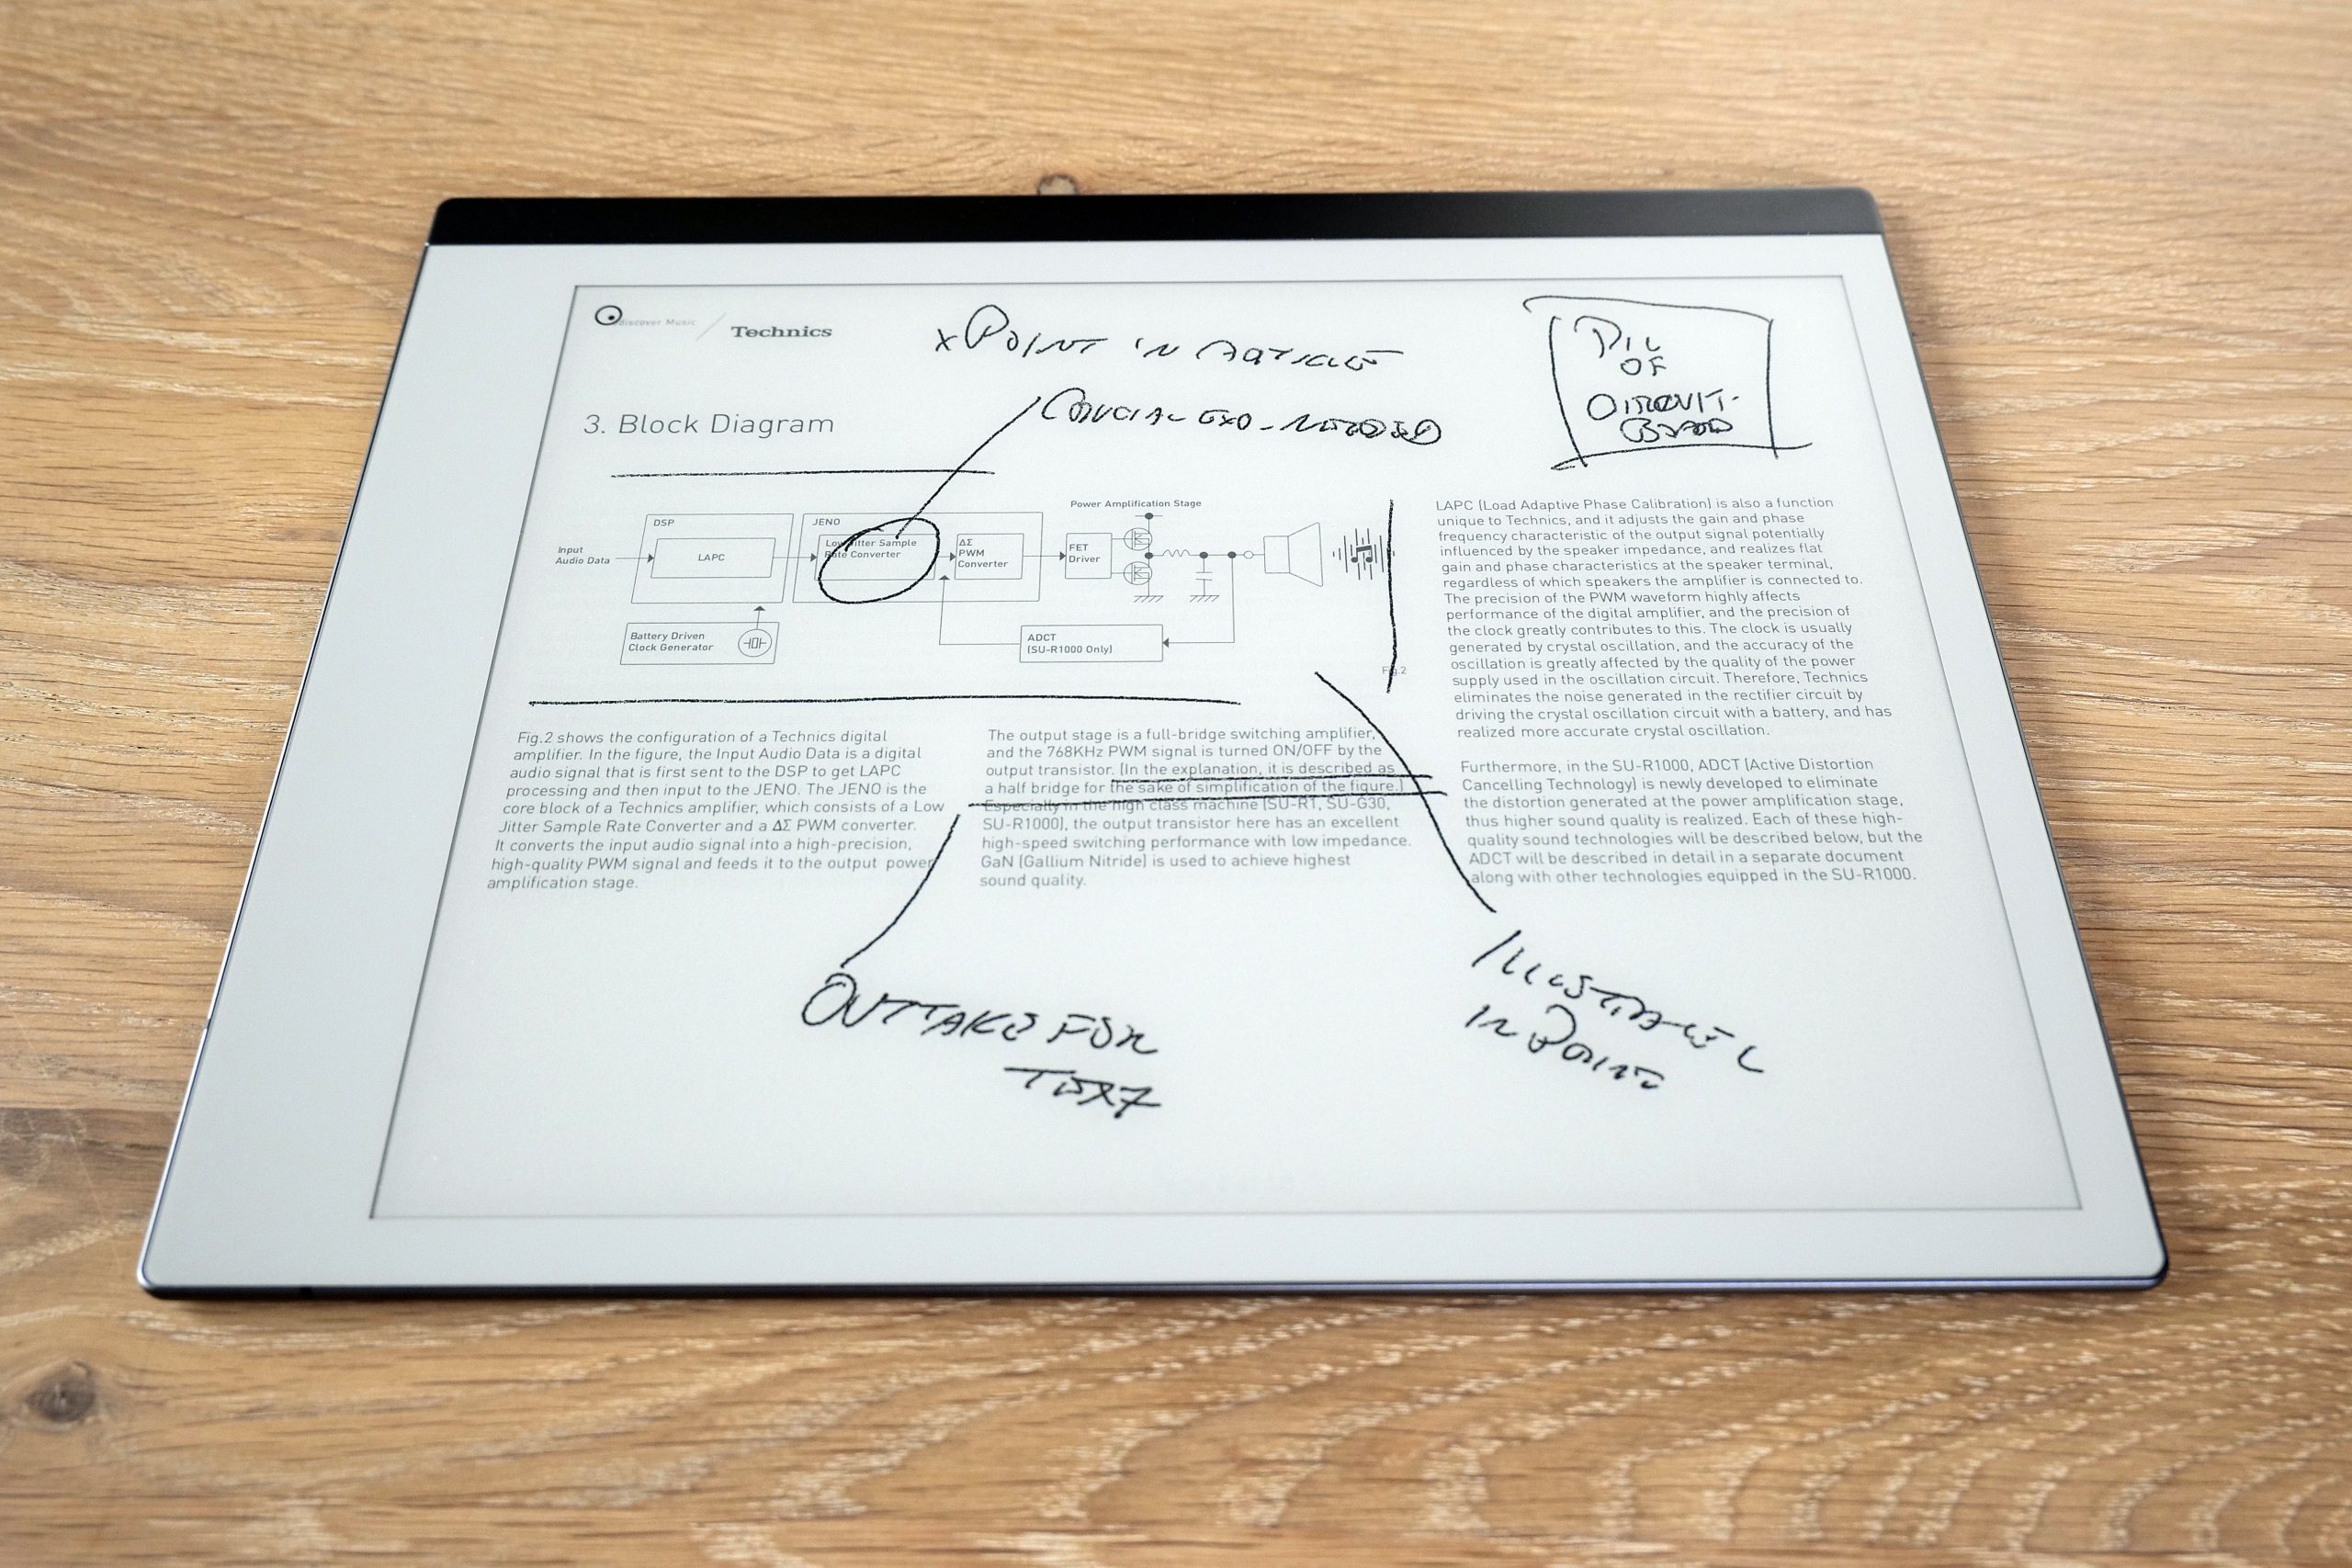 Discover Music
Technics
x POINT IN ARTICLE
CRUCIAL NEEDED
OF
CIRCUIT-
BOARD
3. Block Diagram
Power Amplification Stage
DSP
JENO
Input
Audio Data
LAPC
Low Jitter Sample
Rate Converter
ΔΣ
PWM
Converter
FET
Driver
Battery Driven
Clock Generator
ADCT
(SU-R1000 Only)
Fig.2
Fig.2 shows the configuration of a Technics digital
amplifier. In the figure, the Input Audio Data is a digital
audio signal that is first sent to the DSP to get LAPC
processing and then input to the JENO. The JENO is the
core block of a Technics amplifier, which consists of a Low
Jitter Sample Rate Converter and a ΔΣ PWM converter.
It converts the input audio signal into a high-precision,
high-quality PWM signal and feeds it to the output power
amplification stage.
The output stage is a full-bridge switching amplifier,
and the 768KHz PWM signal is turned ON/OFF by the
output transistor. (In the explanation, it is described as
a half bridge for the sake of simplification of the figure.)
Especially in the high class machine (SU-R1, SU-G30,
SU-R1000), the output transistor here has an excellent
high-speed switching performance with low impedance.
GaN (Gallium Nitride) is used to achieve highest
sound quality.
LAPC (Load Adaptive Phase Calibration) is also a function
unique to Technics, and it adjusts the gain and phase
frequency characteristic of the output signal potentially
influenced by the speaker impedance, and realizes flat
gain and phase characteristics at the speaker terminal,
regardless of which speakers the amplifier is connected to.
The precision of the PWM waveform highly affects
performance of the digital amplifier, and the precision of
the clock greatly contributes to this. The clock is usually
generated by crystal oscillation, and the accuracy of the
oscillation is greatly affected by the quality of the power
supply used in the oscillation circuit. Therefore, Technics
eliminates the noise generated in the rectifier circuit by
driving the crystal oscillation circuit with a battery, and has
realized more accurate crystal oscillation.
Furthermore, in the SU-R1000, ADCT (Active Distortion
Cancelling Technology) is newly developed to eliminate
the distortion generated at the power amplification stage,
thus higher sound quality is realized. Each of these high-
quality sound technologies will be described below, but the
ADCT will be described in detail in a separate document
along with other technologies equipped in the SU-R1000.
OUTTAKE FOR
TEXT
IN POINT